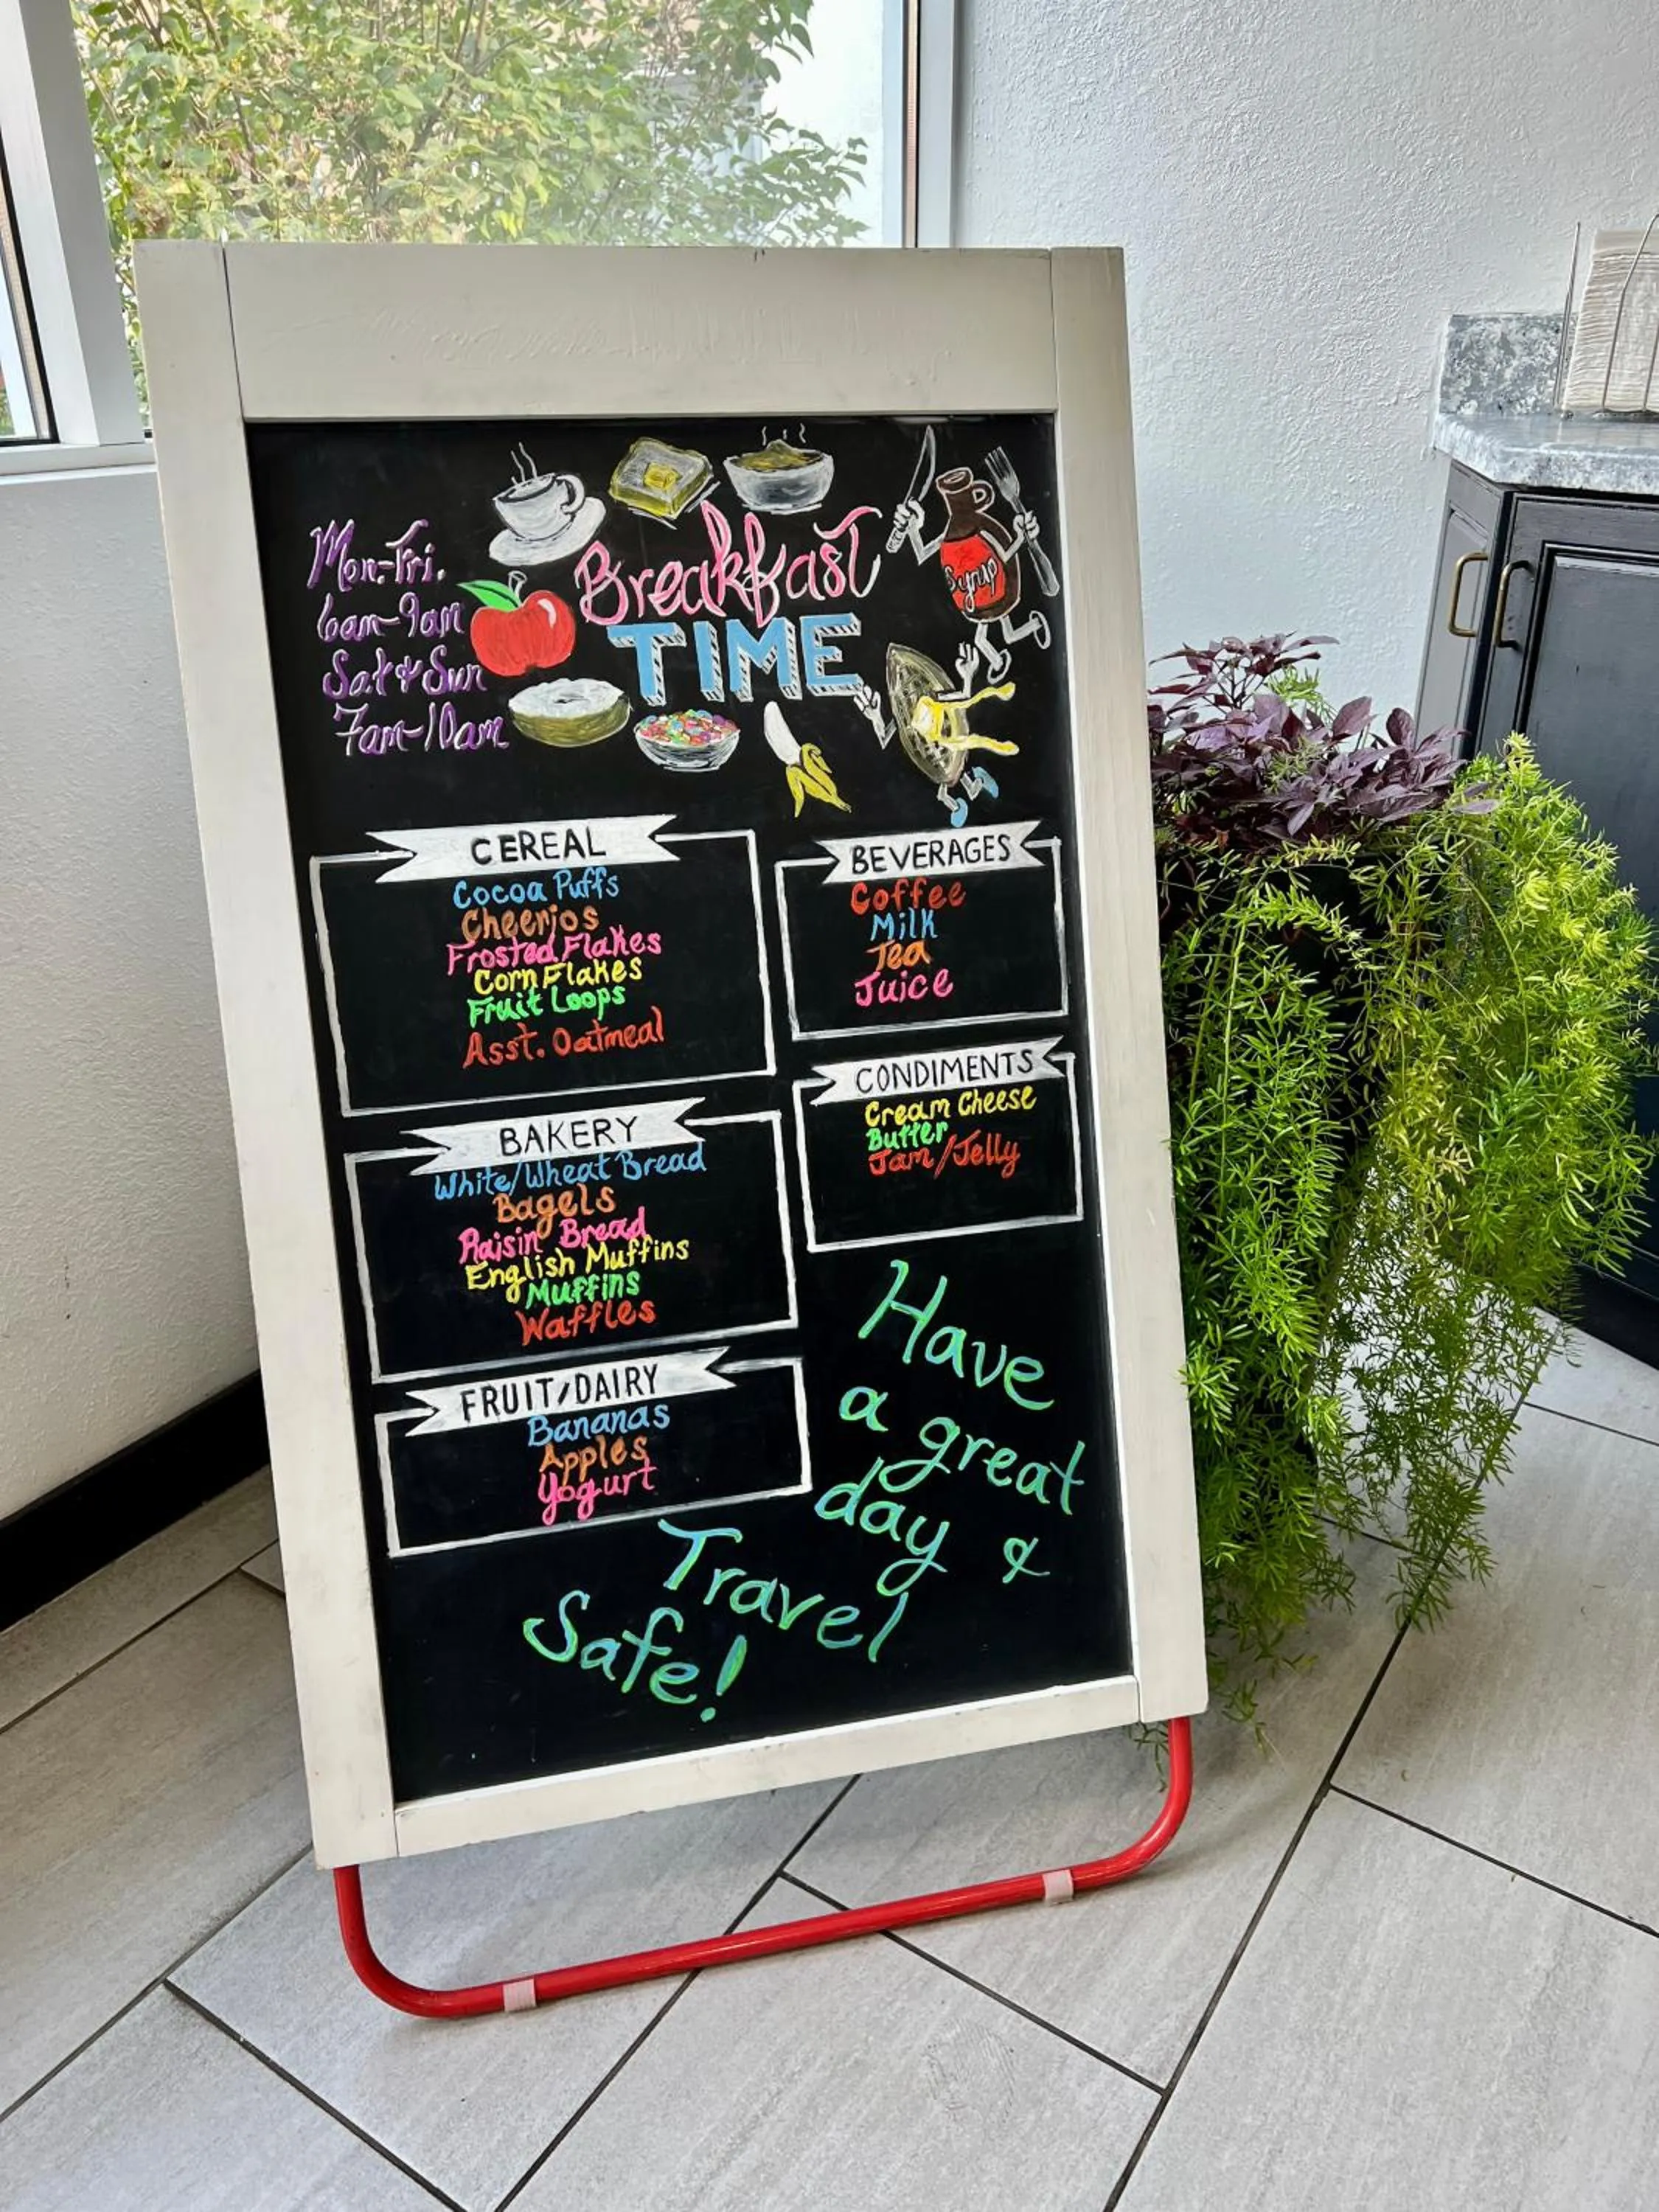 Mon-Fri.
6am-9am
Sat & Sun
7am-10am
Breakfast
TIME
Syrup
CEREAL
Cocoa Puffs
Cheerios
Frosted Flakes
Corn Flakes
Fruit Loops
Asst. Oatmeal
BEVERAGES
Coffee
Milk
Tea
Juice
CONDIMENTS
Cream Cheese
Butter
Jam/Jelly
BAKERY
White/Wheat Bread
Bagels
Raisin Bread
English Muffins
Muffins
Waffles
FRUIT/DAIRY
Bananas
Apples
Yogurt
Have
a great
day &
Travel
Safe!